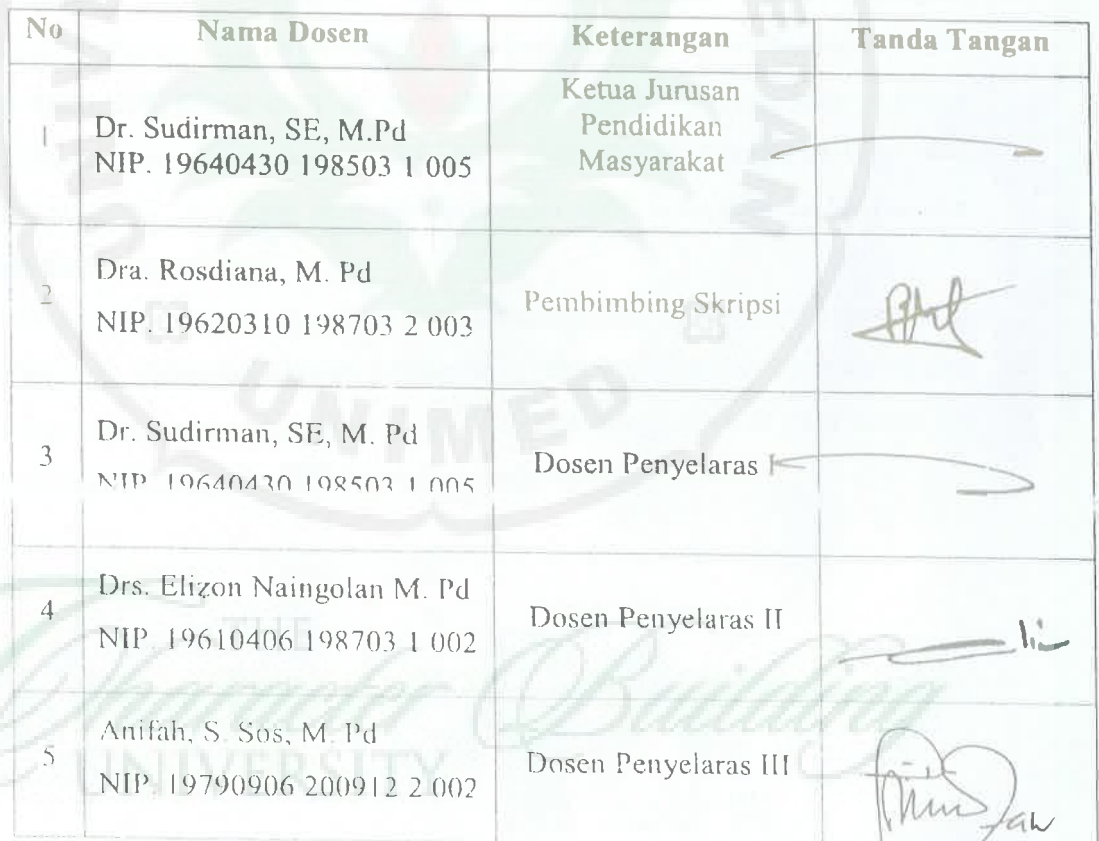 No Nama Dosen Keterangan Tanda Tangan
1 Dr. Sudirman, SE, M.Pd
NIP. 19640430 198503 1 005
Ketua Jurusan
Pendidikan
Masyarakat
2 Dra. Rosdiana, M. Pd
NIP. 19620310 198703 2 003
Pembimbing Skripsi
3 Dr. Sudirman, SE, M. Pd
NIP. 19640430 198503 1 005
Dosen Penyelaras I
4 Drs. Elizon Naingolan M. Pd
NIP. 19610406 198703 1 002
Dosen Penyelaras II
5 Anifah, S. Sos, M. Pd
NIP. 19790906 200912 2 002
Dosen Penyelaras III
UNIMED
THE
Character Building
UNIVERSITY